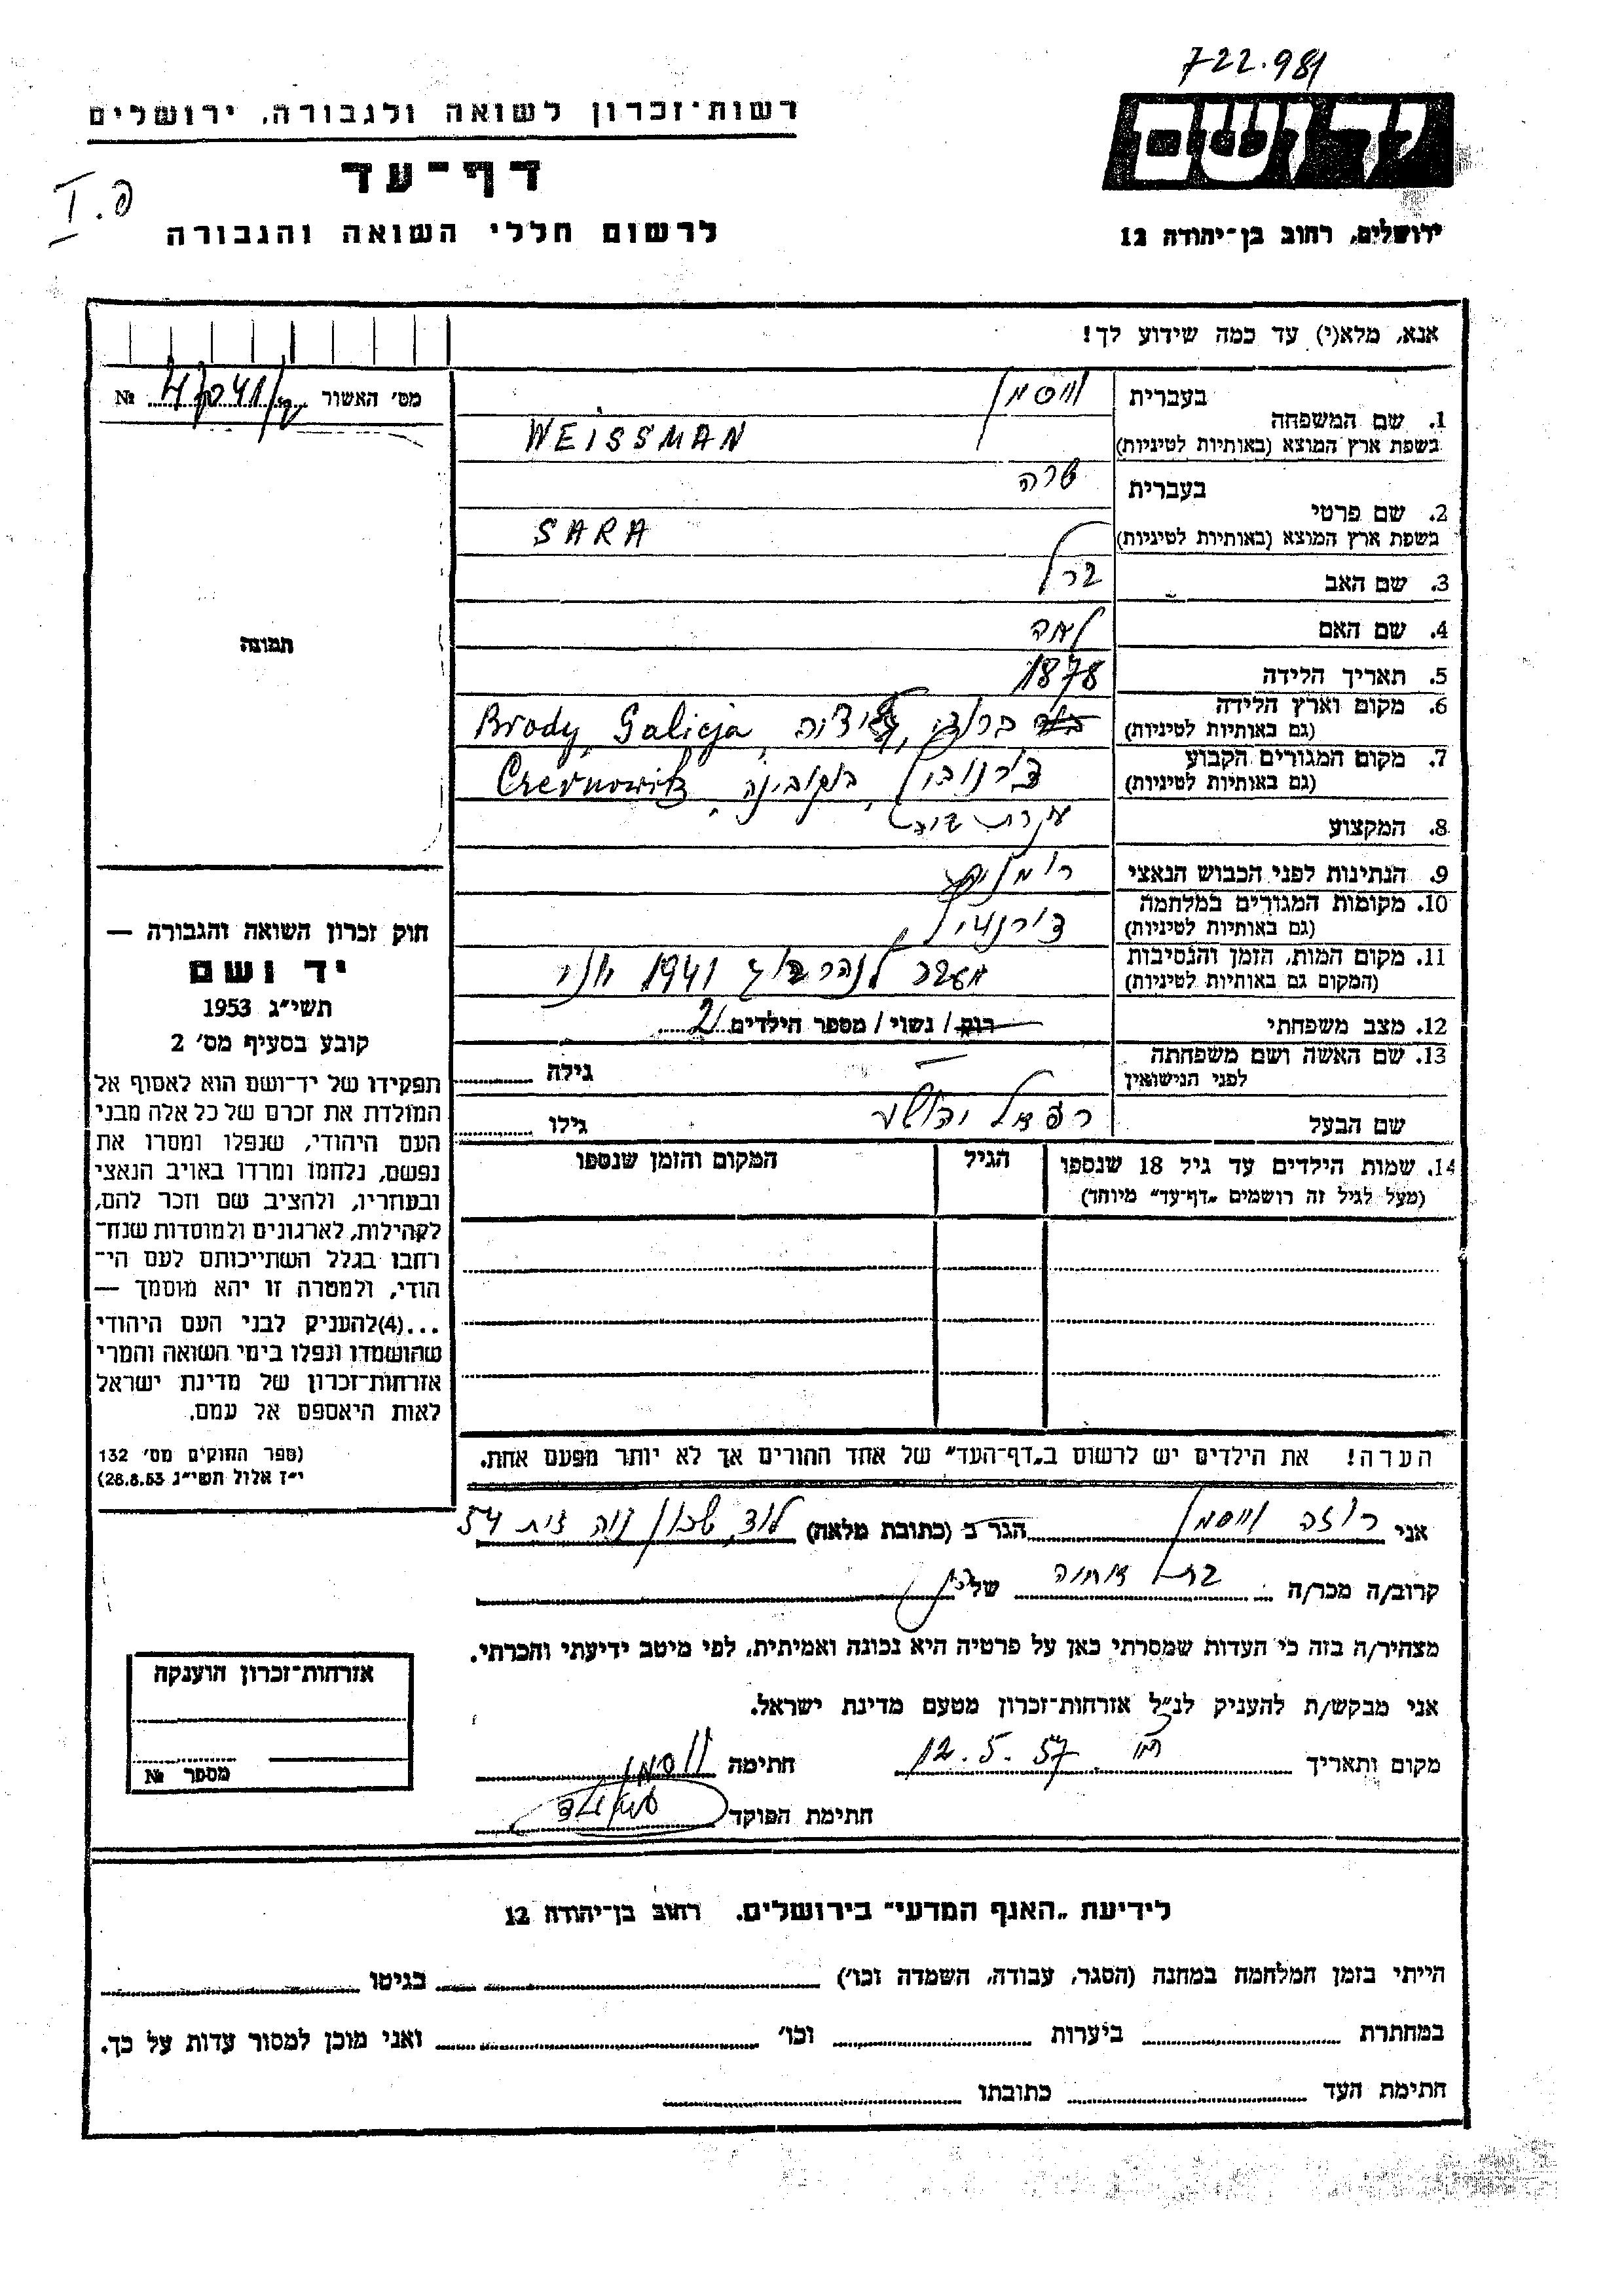 722.981
רשות־זכרון לשואה ולגבורה, ירושלים
דף־עד
לרשום חללי השואה והגבורה
פ. I
יד ושם
ירושלים, רחוב בן־יהודה 12
אנא, מלא(י) עד כמה שידוע לך!
מס׳ האשור №
1. שם המשפחה בעברית ווייסמן
בשפת ארץ המוצא (באותיות לטיניות) WEISSMAN
2. שם פרטי בעברית שרה
בשפת ארץ המוצא (באותיות לטיניות) SARA
3. שם האב ברל
4. שם האם לאה
5. תאריך הלידה 1878
6. מקום וארץ הלידה (גם באותיות לטיניות) ברודי, גליציה, Brody, Galicja
7. מקום המגורים הקבוע (גם באותיות לטיניות) צ'רנוביץ, בוקובינה, Czernowitz
8. המקצוע עקרת בית
9. הנתינות לפני הכבוש הנאצי
10. מקומות המגורים במלחמה (גם באותיות לטיניות) צ'רנוביץ
11. מקום המות, הזמן והנסיבות (המקום גם באותיות לטיניות) מעבר לנהר 1941 יוני
12. מצב משפחתי רווק / נשוי / מספר הילדים 2
13. שם האשה ושם משפחתה לפני הנישואין — גילה
שם הבעל רפאל יהושע גילו
14. שמות הילדים עד גיל 18 שנספו הגיל המקום והזמן שנספו
(מעל לגיל זה רושמים „דף־עד" מיוחד)
תמונה
חוק זכרון השואה והגבורה —
יד ושם
תשי״ג 1953
קובע בסעיף מס׳ 2
תפקידו של יד־ושם הוא לאסוף אל
המולדת את זכרם של כל אלה מבני
העם היהודי, שנפלו ומסרו את
נפשם, נלחמו ומרדו באויב הנאצי
ובעוזריו, ולהציב שם וזכר להם,
לקהילות, לארגונים ולמוסדות שנח־
רבו בגלל השתייכותם לעם הי־
הודי, ולמטרה זו יהא מוסמך —
...(4)להעניק לבני העם היהודי
שהושמדו ונפלו בימי השואה והמרי
אזרחות־זכרון של מדינת ישראל
לאות היאספם אל עמם.
(ספר החוקים מס׳ 132
י״ז אלול תשי״ג 28.8.53)
הערה! את הילדים יש לרשום ב„דף־העד" של אחד ההורים אך לא יותר מפעם אחת.
אני רוזה ווייסמן הגר ב (כתובת מלאה) לוד, שכון נוה זית 54
קרוב/ה מכר/ה בת אחיה של
מצהיר/ה בזה כי העדות שמסרתי כאן על פרטיה היא נכונה ואמיתית, לפי מיטב ידיעתי והכרתי.
אני מבקש/ת להעניק לנ״ל אזרחות־זכרון מטעם מדינת ישראל.
מקום ותאריך 12.5.57 חתימה ווסמן
חתימת הפוקד
אזרחות־זכרון הוענקה
מספר №
לידיעת „האגף המדעי" בירושלים. רחוב בן־יהודה 12
הייתי בזמן המלחמה במחנה (הסגר, עבודה, השמדה וכו׳) בגיטו
במחתרת ביערות וכו׳ ואני מוכן למסור עדות על כך.
חתימת העד כתובתו